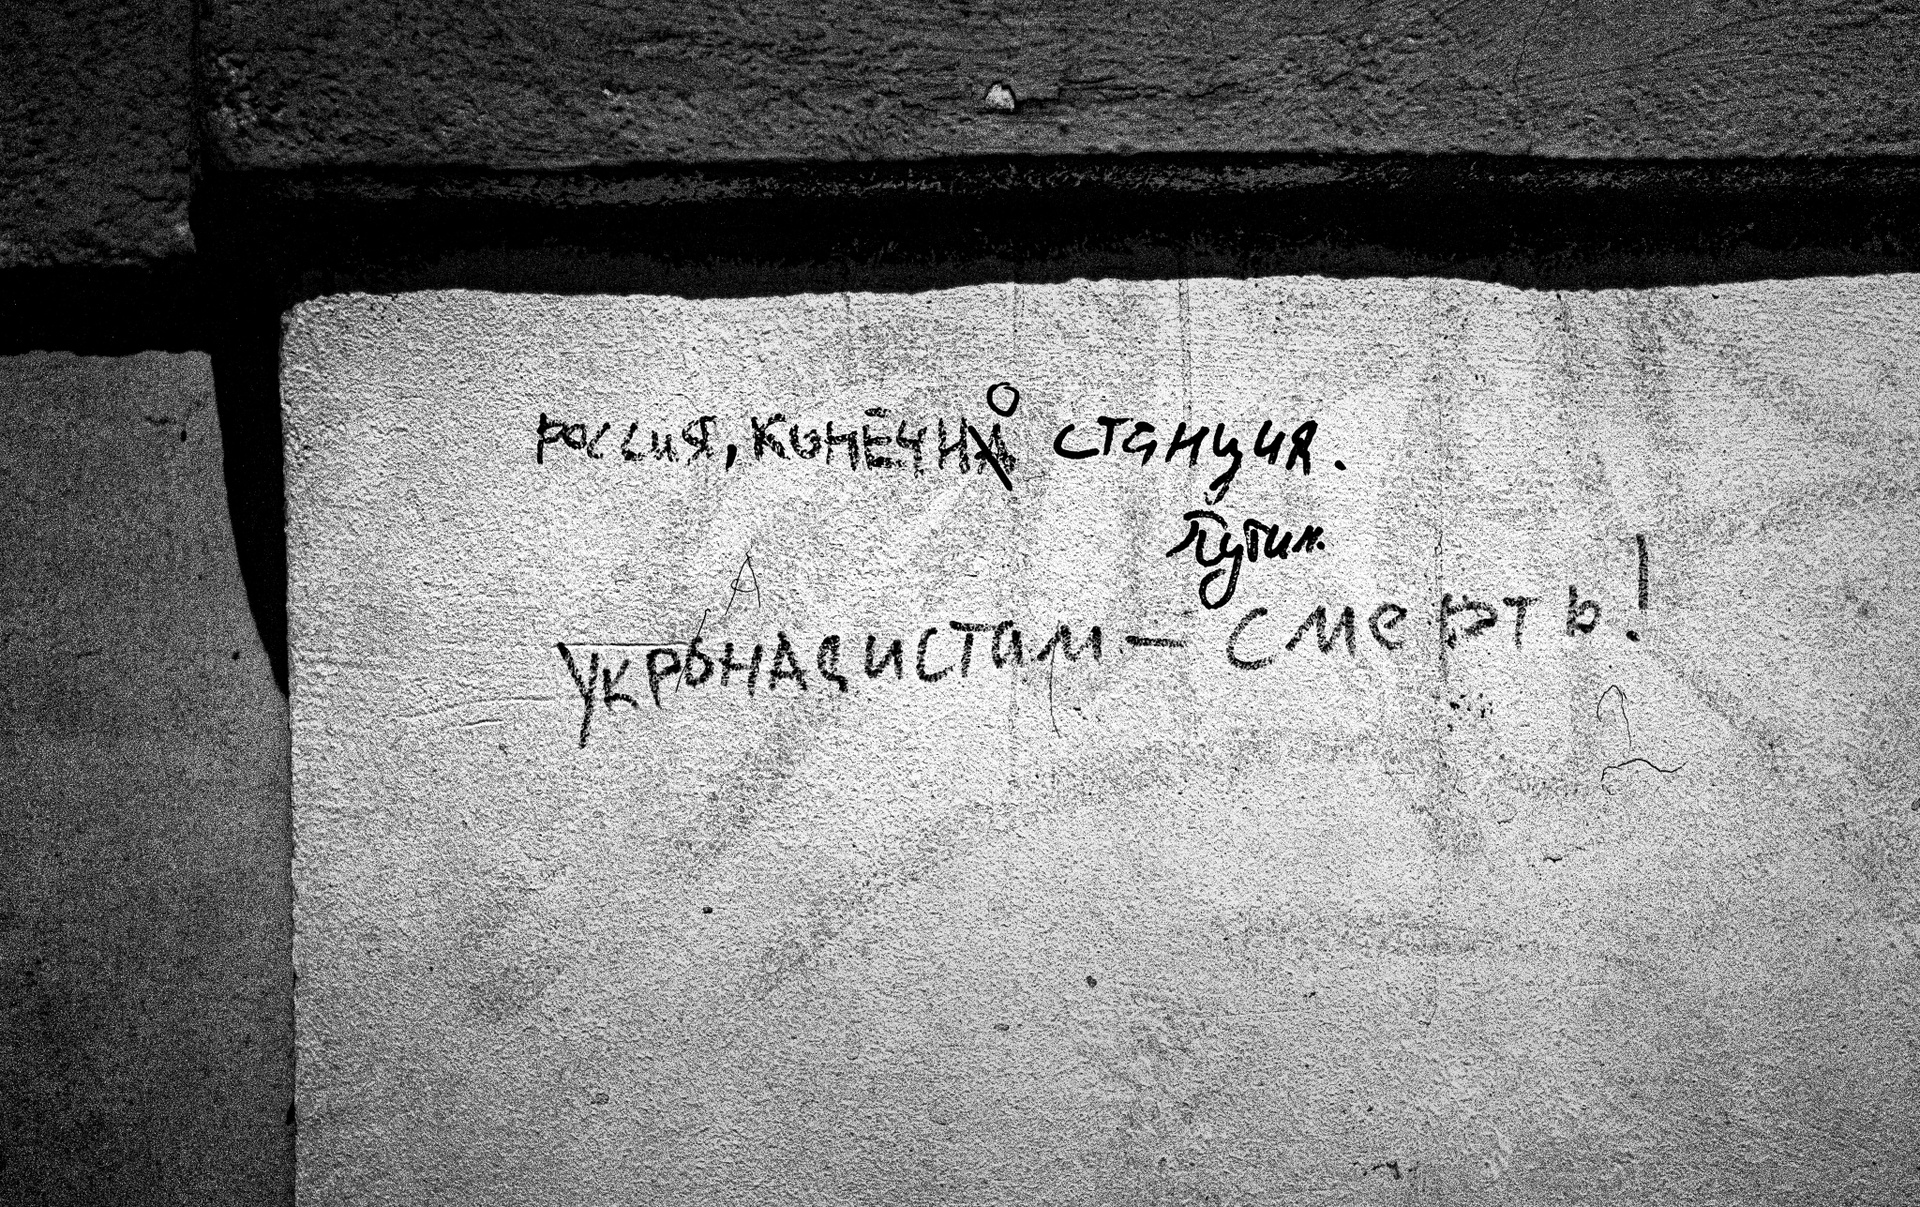 Россия, конечно станция.
Путин.
А
Укронацистам — смерть!